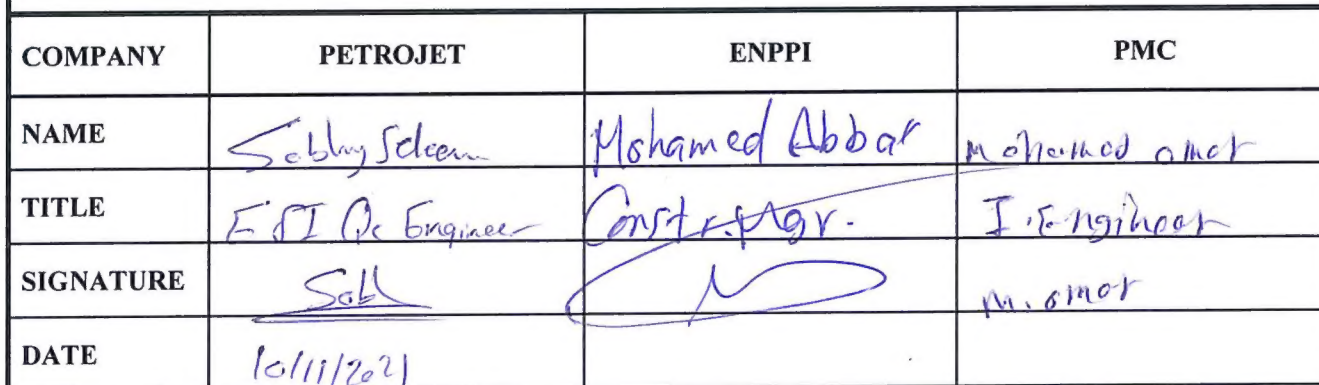 COMPANY PETROJET ENPPI PMC
NAME Sabhy Seleem Mohamed Abbar mohamed omar
TITLE E&I Qc Engineer Constr. Mgr. I. Engineer
SIGNATURE Sabh m. omar
DATE 10/11/2021